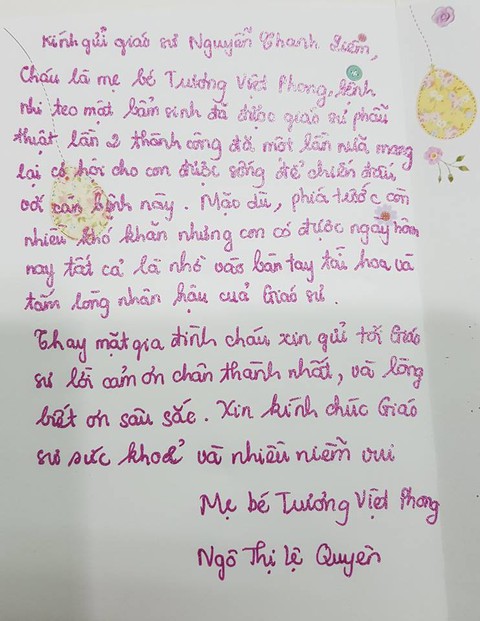 Kính gửi giáo sư Nguyễn Thanh Liêm,
Cháu là mẹ bé Trương Việt Phong, bệnh
nhi teo mật bẩm sinh đã được giáo sư phẫu
thuật lần 2 thành công đã một lần nữa mang
lại cơ hội cho con được sống để chiến đấu
với căn bệnh này. Mặc dù, phía trước còn
nhiều khó khăn nhưng con có được ngày hôm
nay tất cả là nhờ vào bàn tay tài hoa và
tấm lòng nhân hậu của Giáo sư.
Thay mặt gia đình cháu xin gửi tới Giáo
sư lời cảm ơn chân thành nhất, và lòng
biết ơn sâu sắc. Xin kính chúc Giáo
sư sức khoẻ và nhiều niềm vui
Mẹ bé Trương Việt Phong
Ngô Thị Lệ Quyên